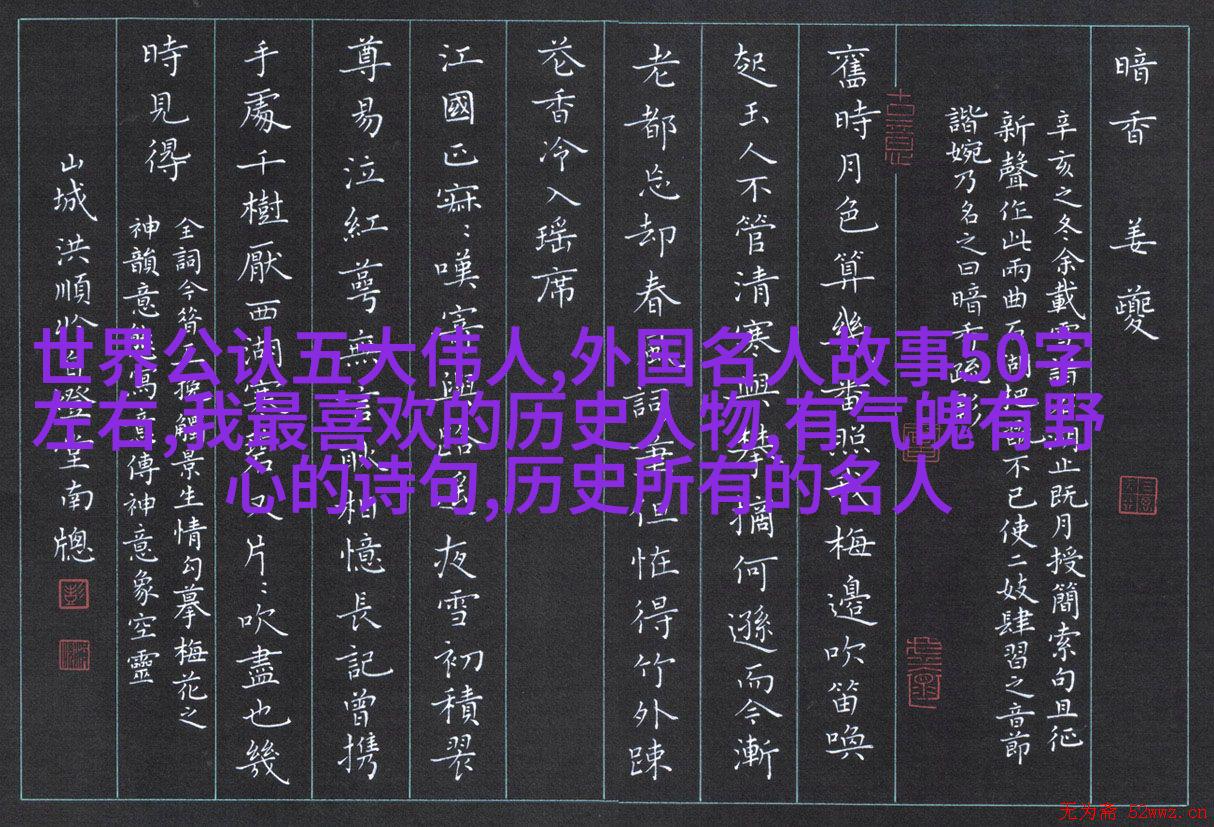 世界公认五大伟人,外国名人故事50字
左右,我最喜欢的历史人物,有气魄有野
心的诗句,历史所有的名人
暗香 姜夔
辛亥之冬余載雪詣石湖止既月授簡索句且征
新聲作此兩曲石湖把玩不已使二妓肆習之音節
諧婉乃名之曰暗香疏影
舊時月色算幾番照我梅邊吹笛喚
起玉人不管清寒與攀摘何遜而今漸
老都忘却春風詞筆但恠得竹外疎
花香冷入瑶席
江國正寂:嘆寄與路遙夜雪初積翠
尊易泣紅萼無言耿相憶長記曾携
手處千樹壓西湖寒碧又片:吹盡也幾
時見得
全詞今景生情勾摹梅花之
神韻意寫意傳神意象空靈
山城洪順南牕
古意
无为斋 52wwz.cn